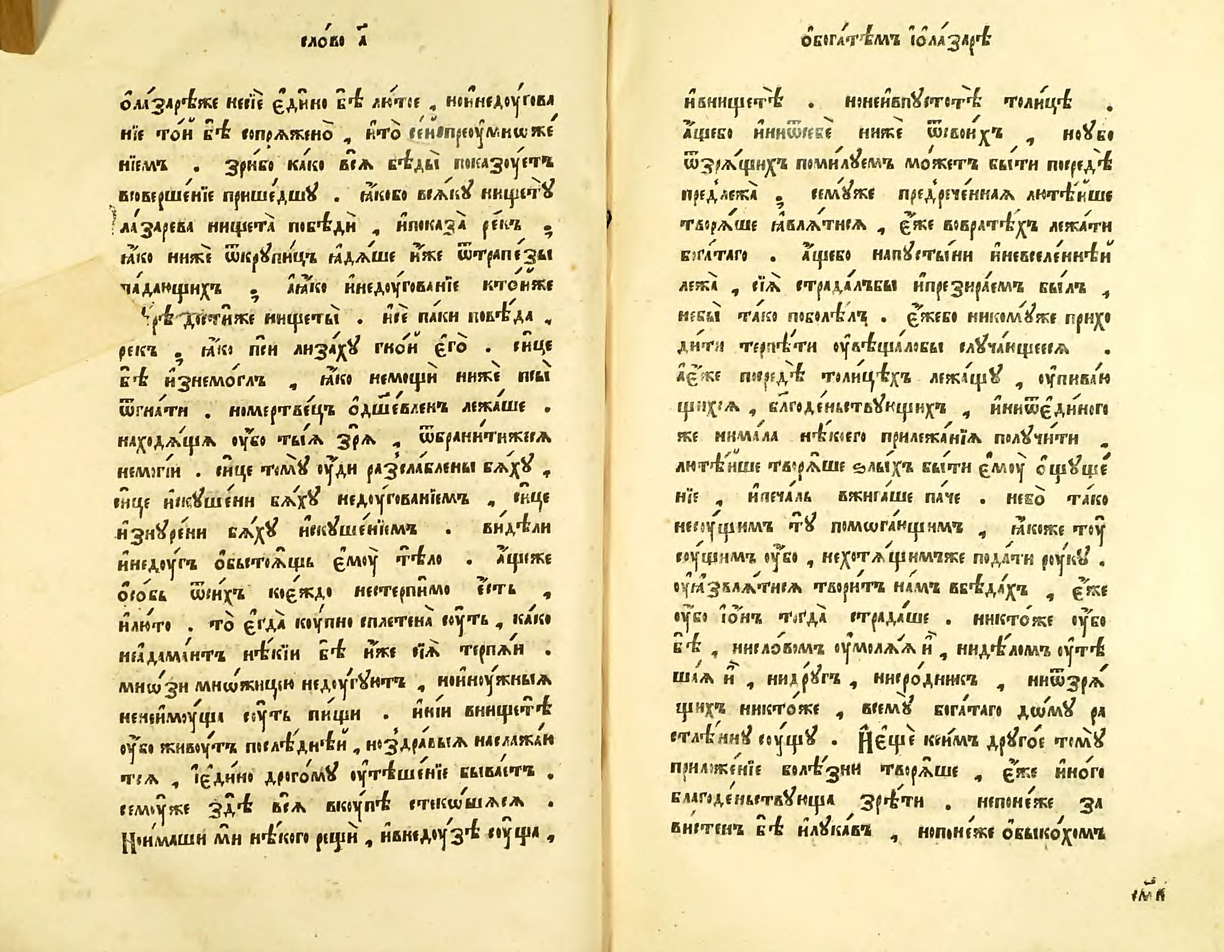 сло́во а҃
ѡ҆ла́зарѣже несїѐ є҆ди́но бѣ̀ лю́тое , нои҆недоу́гова
нїе то́й бѣ̀ сопряженѡ̀ , и҆то̀
нїемъ . зри́бо ка́ко вся̑ бѣ́ды показоу́етъ
всоверше́нїе прише́дшꙋ . ꙗ҆́кобо вся́кꙋ нищетꙋ̀
ла́зарева нищета̀ побѣдѝ , и҆показа̀ ре́къ ,
ꙗ҆́ко нижѐ ѿкрꙋпи́цъ ꙗ҆дя́ше и҆́же ѿтрапе́зы
па́дающихъ ; а҆ꙗ҆́ко и҆недоу́гованїе кто́йже
дости́же нищеты̀ . и҆сѐ па́ки повѣ́да ,
ре́къ ; ꙗ҆́ко псѝ лиза́хꙋ гно́й є҆гѡ̀ . си́це
бѣ̀ и҆знемо́глъ , ꙗ҆́ко немощѝ нижѐ псы̀
ѿгна́ти . номертве́цъ ѡ҆дш҃евленъ лежа́ше .
находя́щꙗ оу҆́бо ты́ꙗ зря̀ , ѿбрани́тижеся
немогі́й . си́це томꙋ̀ оу҆́ди разсла́блены бя́хꙋ ,
си́це и҆скꙋше́ни бя́хꙋ недоу́гованїемъ , си́це
и҆знꙋре́ни бя́хꙋ и҆скꙋше́нїемъ . ви́дѣли
и҆недоу́гъ ѡ҆бьстоя́щь є҆моу̀ тѣ́ло . а҆́щеже
ѡ҆со́бь ѿси́хъ кое́ждо нестерпи́мо є҆́сть ,
и҆лю́то . то̀ є҆гда̀ коу́пно сплетена̀ соу́ть , ка́ко
неа҆дама́нтъ нѣ́кїи бѣ̀ и҆́же сїѧ̀ терпя́и .
мно́зи мно́жицею недоу́гꙋютъ , нои҆ноу́жныꙗ
ненеи҆моу́ща соу́ть пи́щи . и҆ні́и внищетѣ̀
оу҆́бо живоу́тъ послѣ́днѣй , ноздра́выꙗ наслажа́ю
тся , і҆є҆ди́но дрого́мꙋ оу҆тѣше́нїе быва́етъ .
семоу́же здѣ̀ вся̑ вкоу́пѣ стеко́шꙗся .
Нои҆́маши мѝ нѣ́кого рещѝ , и҆внедоу́зѣ соу́ща ,
ѡ҆бога́тѣмъ і҆ѡ҆ла́зарѣ
и҆внищетѣ̀ . нонеи҆впꙋстотѣ̀ толи́цѣ .
а҆́щебо и҆ниѿсебѐ нижѐ ѿсвои́хъ , ноу́бо
ѿзря́щихъ поми́лꙋемъ мо́жетъ бы́ти посредѣ̀
предлежа̀ ; семꙋ́же предрече́ннаꙗ лютѣ́йше
творя́ше ꙗ҆вля́тися , є҆́же вовратѣ́хъ лежа́ти
бога́таго . а҆́щебо напꙋсты́ни и҆невселе́ннѣй
лежа̀ , сїѧ̀ страда́лъбы и҆презира́емъ бы́лъ ,
небы̀ та́ко поболѣ́лъ . є҆́жебо никомꙋ́же прихо
ди́ти терпѣ́ти оу҆вѣща́лобы слꙋча́ющееся .
а҆є҆́же посредѣ̀ толи́цѣхъ лежа́щꙋ , оу҆пива́ю
щихся , блгодѐньствꙋющихъ , и҆ниѿє҆ди́ного
же нима́ла нѣ́коего прилежа́нїя полꙋчи́ти ,
лютѣ́йше творя́ше ѕлы́хъ бы́ти є҆моу̀ ѡ҆щꙋще́
нїе , и҆печа́ль вжига́ше па́че . небо̀ та́ко
несоу́щимъ тꙋ̀ помога́ющимъ , ꙗ҆́коже тоу̀
соу́щимъ оу҆́бо , нехотя́щимъже пода́ти роу́кꙋ .
оу҆ꙗ҆звля́тися твори́тъ на́мъ вбѣда́хъ , є҆́же
оу҆́бо і҆ѡ҆́нъ тогда̀ страда́ше . никто́же оу҆́бо
бѣ̀ , нисло́вомъ оу҆моля́ꙗ и҆̀ , нидѣ́ломъ оу҆тѣ
ша́ꙗ и҆̀ , нидрꙋ́гъ , нисро́дникъ , ниѿзря́
щихъ никто́же , всемꙋ̀ бога́таго до́мꙋ ра
стлѣ́ннꙋ соу́щꙋ . И҆є҆щѐ ксимъ дрꙋго́е томꙋ̀
приложе́нїе болѣ́зни творя́ше , є҆́же и҆но́го
благоде́ньствꙋюща зрѣ́ти . непоне́же за
ви́стенъ бѣ̀ и҆лꙋка́въ , нопоне́же ѡ҆быко́хомъ